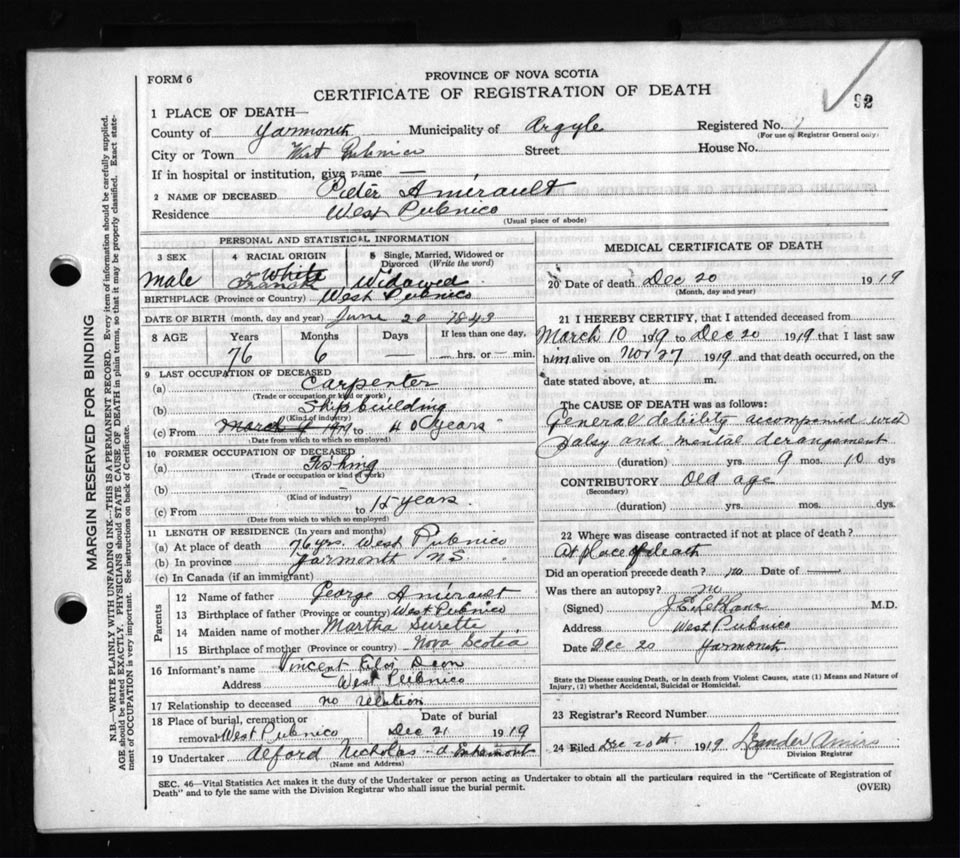 FORM 6
PROVINCE OF NOVA SCOTIA
CERTIFICATE OF REGISTRATION OF DEATH
92
1 PLACE OF DEATH—
County of Yarmouth Municipality of Argyle Registered No.
(For use of Registrar General only)
City or Town West Pubnico Street House No.
If in hospital or institution, give name —
2 NAME OF DECEASED Peter Amirault
Residence West Pubnico
(Usual place of abode)
PERSONAL AND STATISTICAL INFORMATION
3 SEX 4 RACIAL ORIGIN 5 Single, Married, Widowed or Divorced (Write the word)
Male White Widowed
BIRTHPLACE (Province or Country) West Pubnico
DATE OF BIRTH (month, day and year) June 20 1843
8 AGE Years Months Days If less than one day,
76 6 — — hrs. or — min.
9 LAST OCCUPATION OF DECEASED
(a) Carpenter
(Trade or occupation or kind of work)
(b) Ship building
(Kind of industry)
(c) From March 9 1919 to 40 years "
(Date from which to which so employed)
10 FORMER OCCUPATION OF DECEASED
(a) Fishing
(Trade or occupation or kind of work)
(b)
(Kind of industry)
(c) From to 15 years
(Date from which to which so employed)
11 LENGTH OF RESIDENCE (In years and months)
(a) At place of death 76 yrs. West Pubnico
(b) In province Yarmouth N S "
(c) In Canada (if an immigrant)
Parents
12 Name of father George Amirault
13 Birthplace of father (Province or country) West Pubnico
14 Maiden name of mother Martha Surette
15 Birthplace of mother (Province or country) Nova Scotia
16 Informant's name Vincent Deon
Address West Pubnico
17 Relationship to deceased no relation
18 Place of burial, cremation or removal West Pubnico Date of burial Dec 21 1919
19 Undertaker Alford Nicholas
(Name and Address)
MEDICAL CERTIFICATE OF DEATH
20 Date of death Dec 20 1919
(Month, day and year)
21 I HEREBY CERTIFY, that I attended deceased from
March 10 1919 to Dec 20 1919 that I last saw
him alive on Nov 27 1919 and that death occurred, on the
date stated above, at m.
The CAUSE OF DEATH was as follows:
General debility accompanied with
Palsy and mental derangement
(duration) yrs. 9 mos. 10 dys
CONTRIBUTORY Old age
(Secondary)
(duration) yrs. mos. dys.
22 Where was disease contracted if not at place of death?
At place of death
Did an operation precede death? no Date of —
Was there an autopsy? no
(Signed) M.D.
Address West Pubnico
Date Dec 20 Yarmouth
State the Disease causing Death, or in death from Violent Causes, state (1) Means and Nature of
Injury, (2) whether Accidental, Suicidal or Homicidal.
23 Registrar's Record Number
24 Filed Dec 20th 1919 Leander Amiro
Division Registrar
SEC. 46—Vital Statistics Act makes it the duty of the Undertaker or person acting as Undertaker to obtain all the particulars required in the "Certificate of Registration of
Death" and to fyle the same with the Division Registrar who shall issue the burial permit.
(OVER)
MARGIN RESERVED FOR BINDING
N.B.—WRITE PLAINLY WITH UNFADING INK—THIS IS A PERMANENT RECORD. Every item of information should be carefully supplied.
AGE should be stated EXACTLY. PHYSICIANS should STATE CAUSE OF DEATH in plain terms, so that it may be properly classified. Exact state-
ment of OCCUPATION is very important. See instructions on back of Certificate.